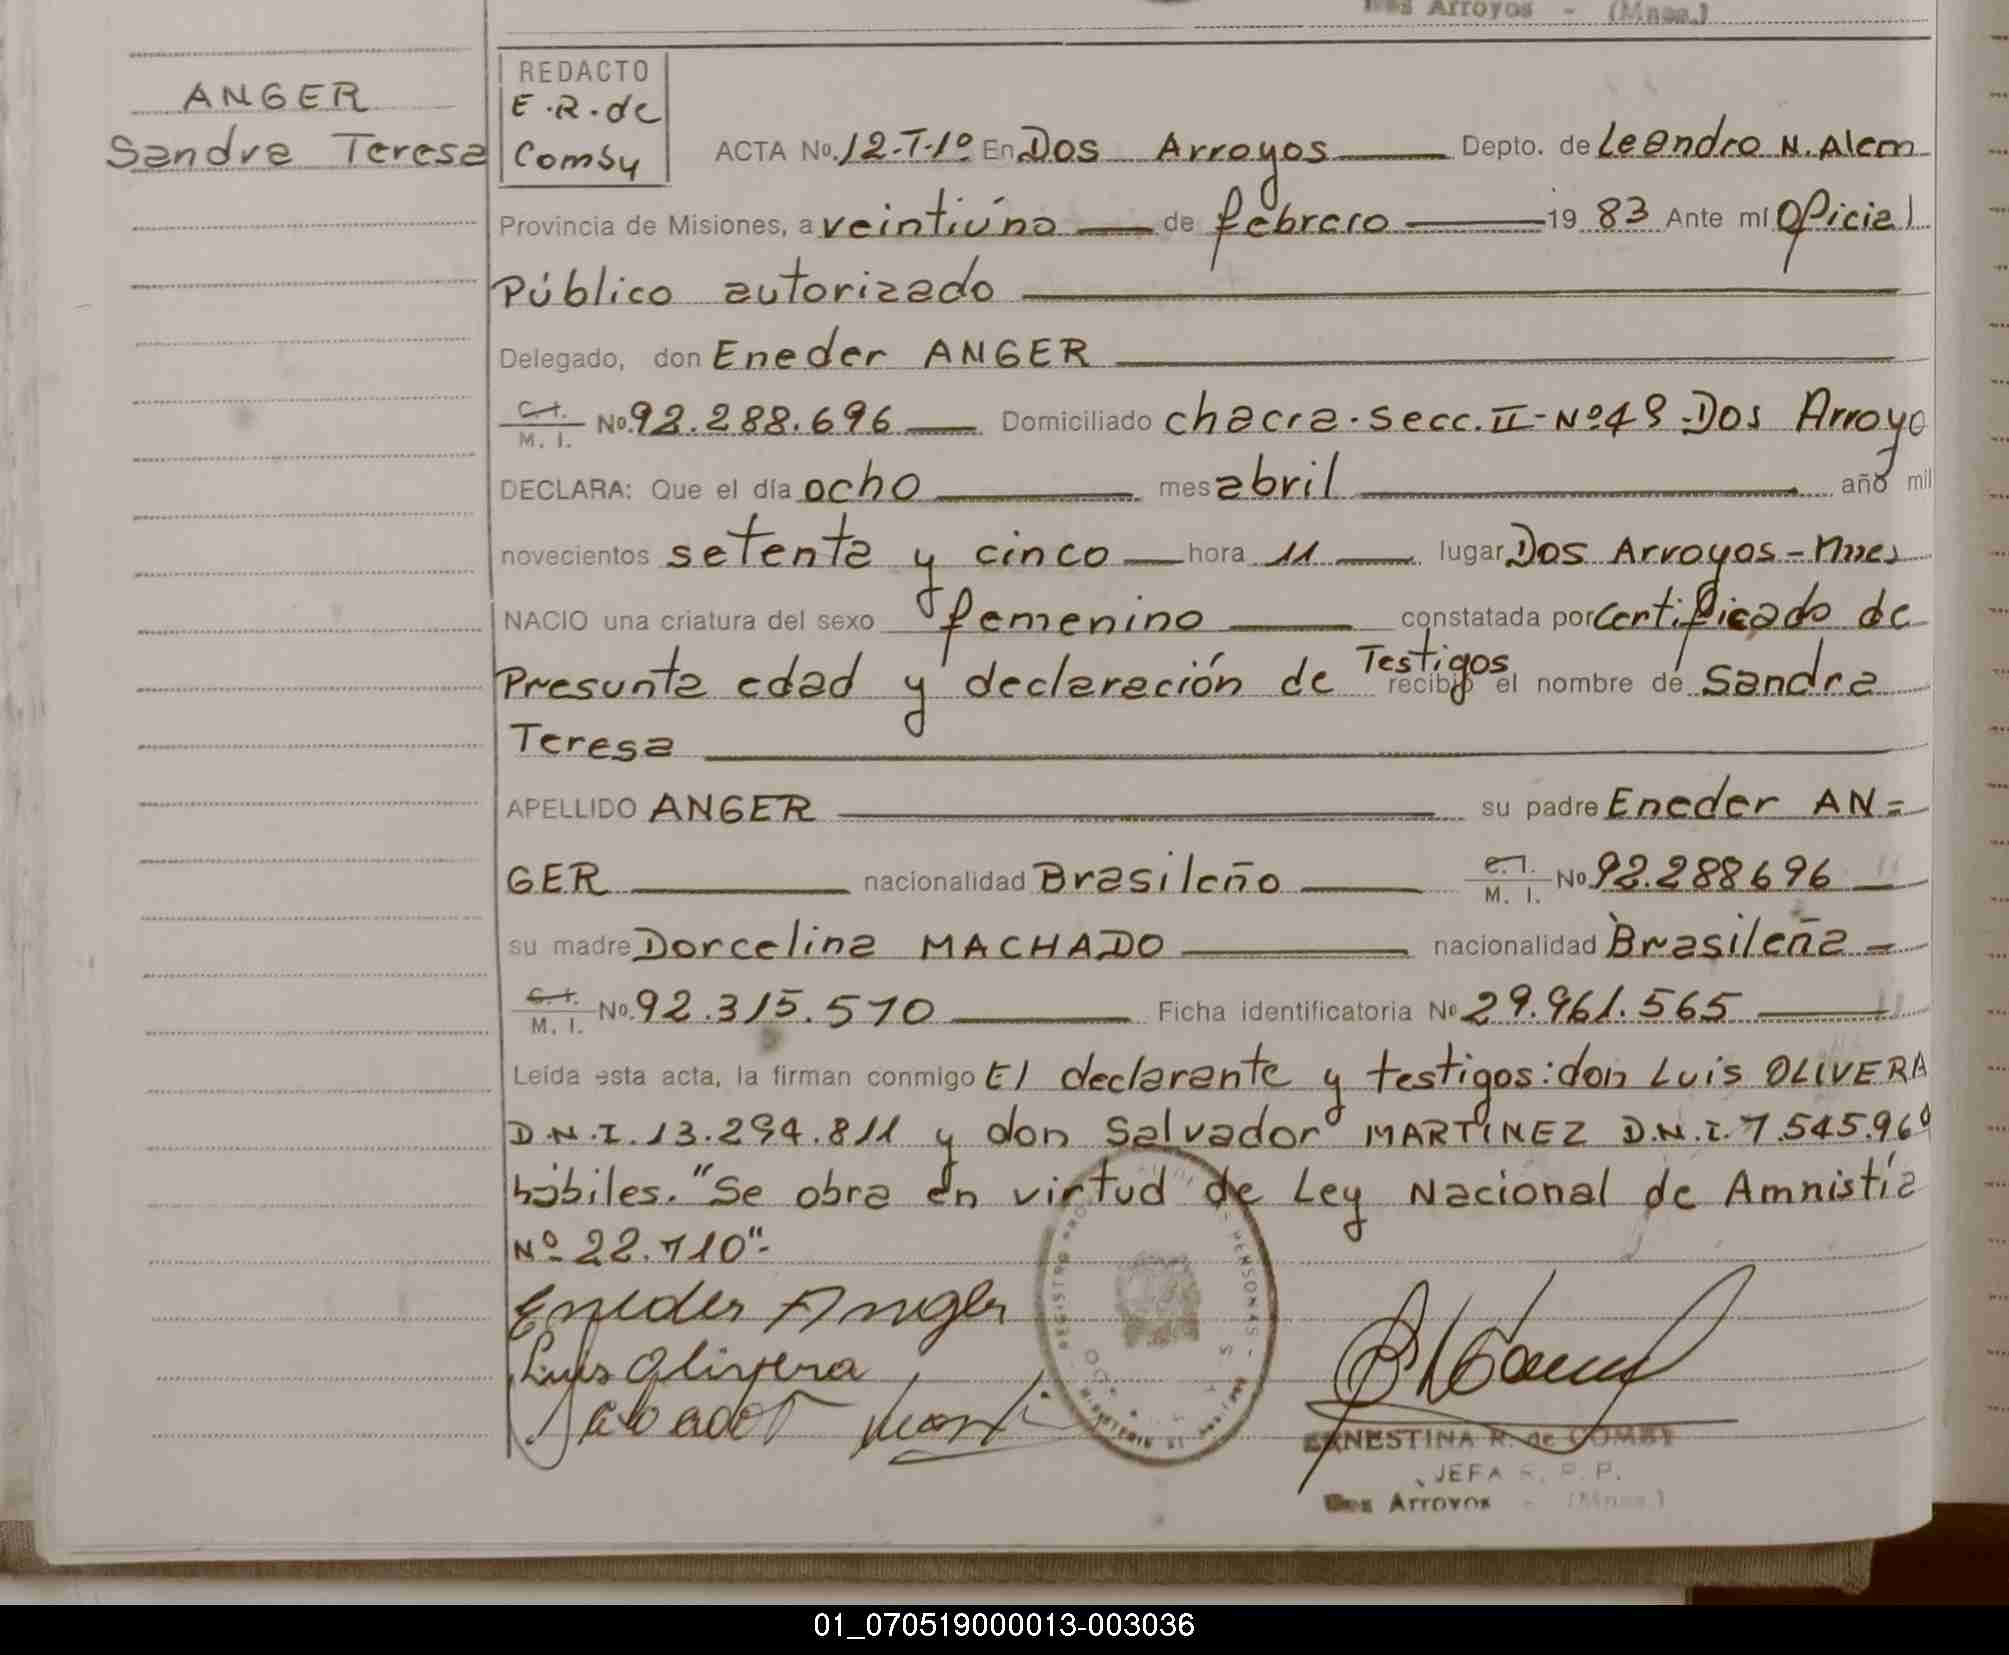 Dos Arroyos - (Mnes.)
ANGER
Sandra Teresa
REDACTO
E.R.de
Comby
ACTA No. 12-T-1º En Dos Arroyos Depto. de Leandro N. Alem
Provincia de Misiones, a veintiúno de febrero 19 83 Ante mí Oficial
Público autorizado
Delegado, don Eneder ANGER
C.I. M. I. No. 92.288.696 Domiciliado chacra. secc. II - Nº 49 - Dos Arroyo
DECLARA: Que el día ocho mes abril año mil
novecientos setenta y cinco hora 11 lugar Dos Arroyos - Mnes
NACIO una criatura del sexo femenino constatada por certificado de
Presunta edad y declaración de Testigos recibió el nombre de Sandra
Teresa
APELLIDO ANGER su padre Eneder AN=
GER nacionalidad Brasileño C.I. M. I. No 92.288696
su madre Dorcelina MACHADO nacionalidad Brasileña
C.I. M. I. No. 92.315.570 Ficha identificatoria No 29.961.565
Leída esta acta, la firman conmigo El declarante y testigos: don Luis OLIVERA
D.N.I. 13.294.811 y don Salvador MARTINEZ D.N.I. 7.545.960
hábiles. "Se obra en virtud de Ley Nacional de Amnistía
Nº 22.710"-
Eneder Anger
Luis Olivera
Salvador
ERNESTINA R. de COMBY
JEFA R. P. P.
Dos Arroyos - (Mnes.)
01_070519000013-003036